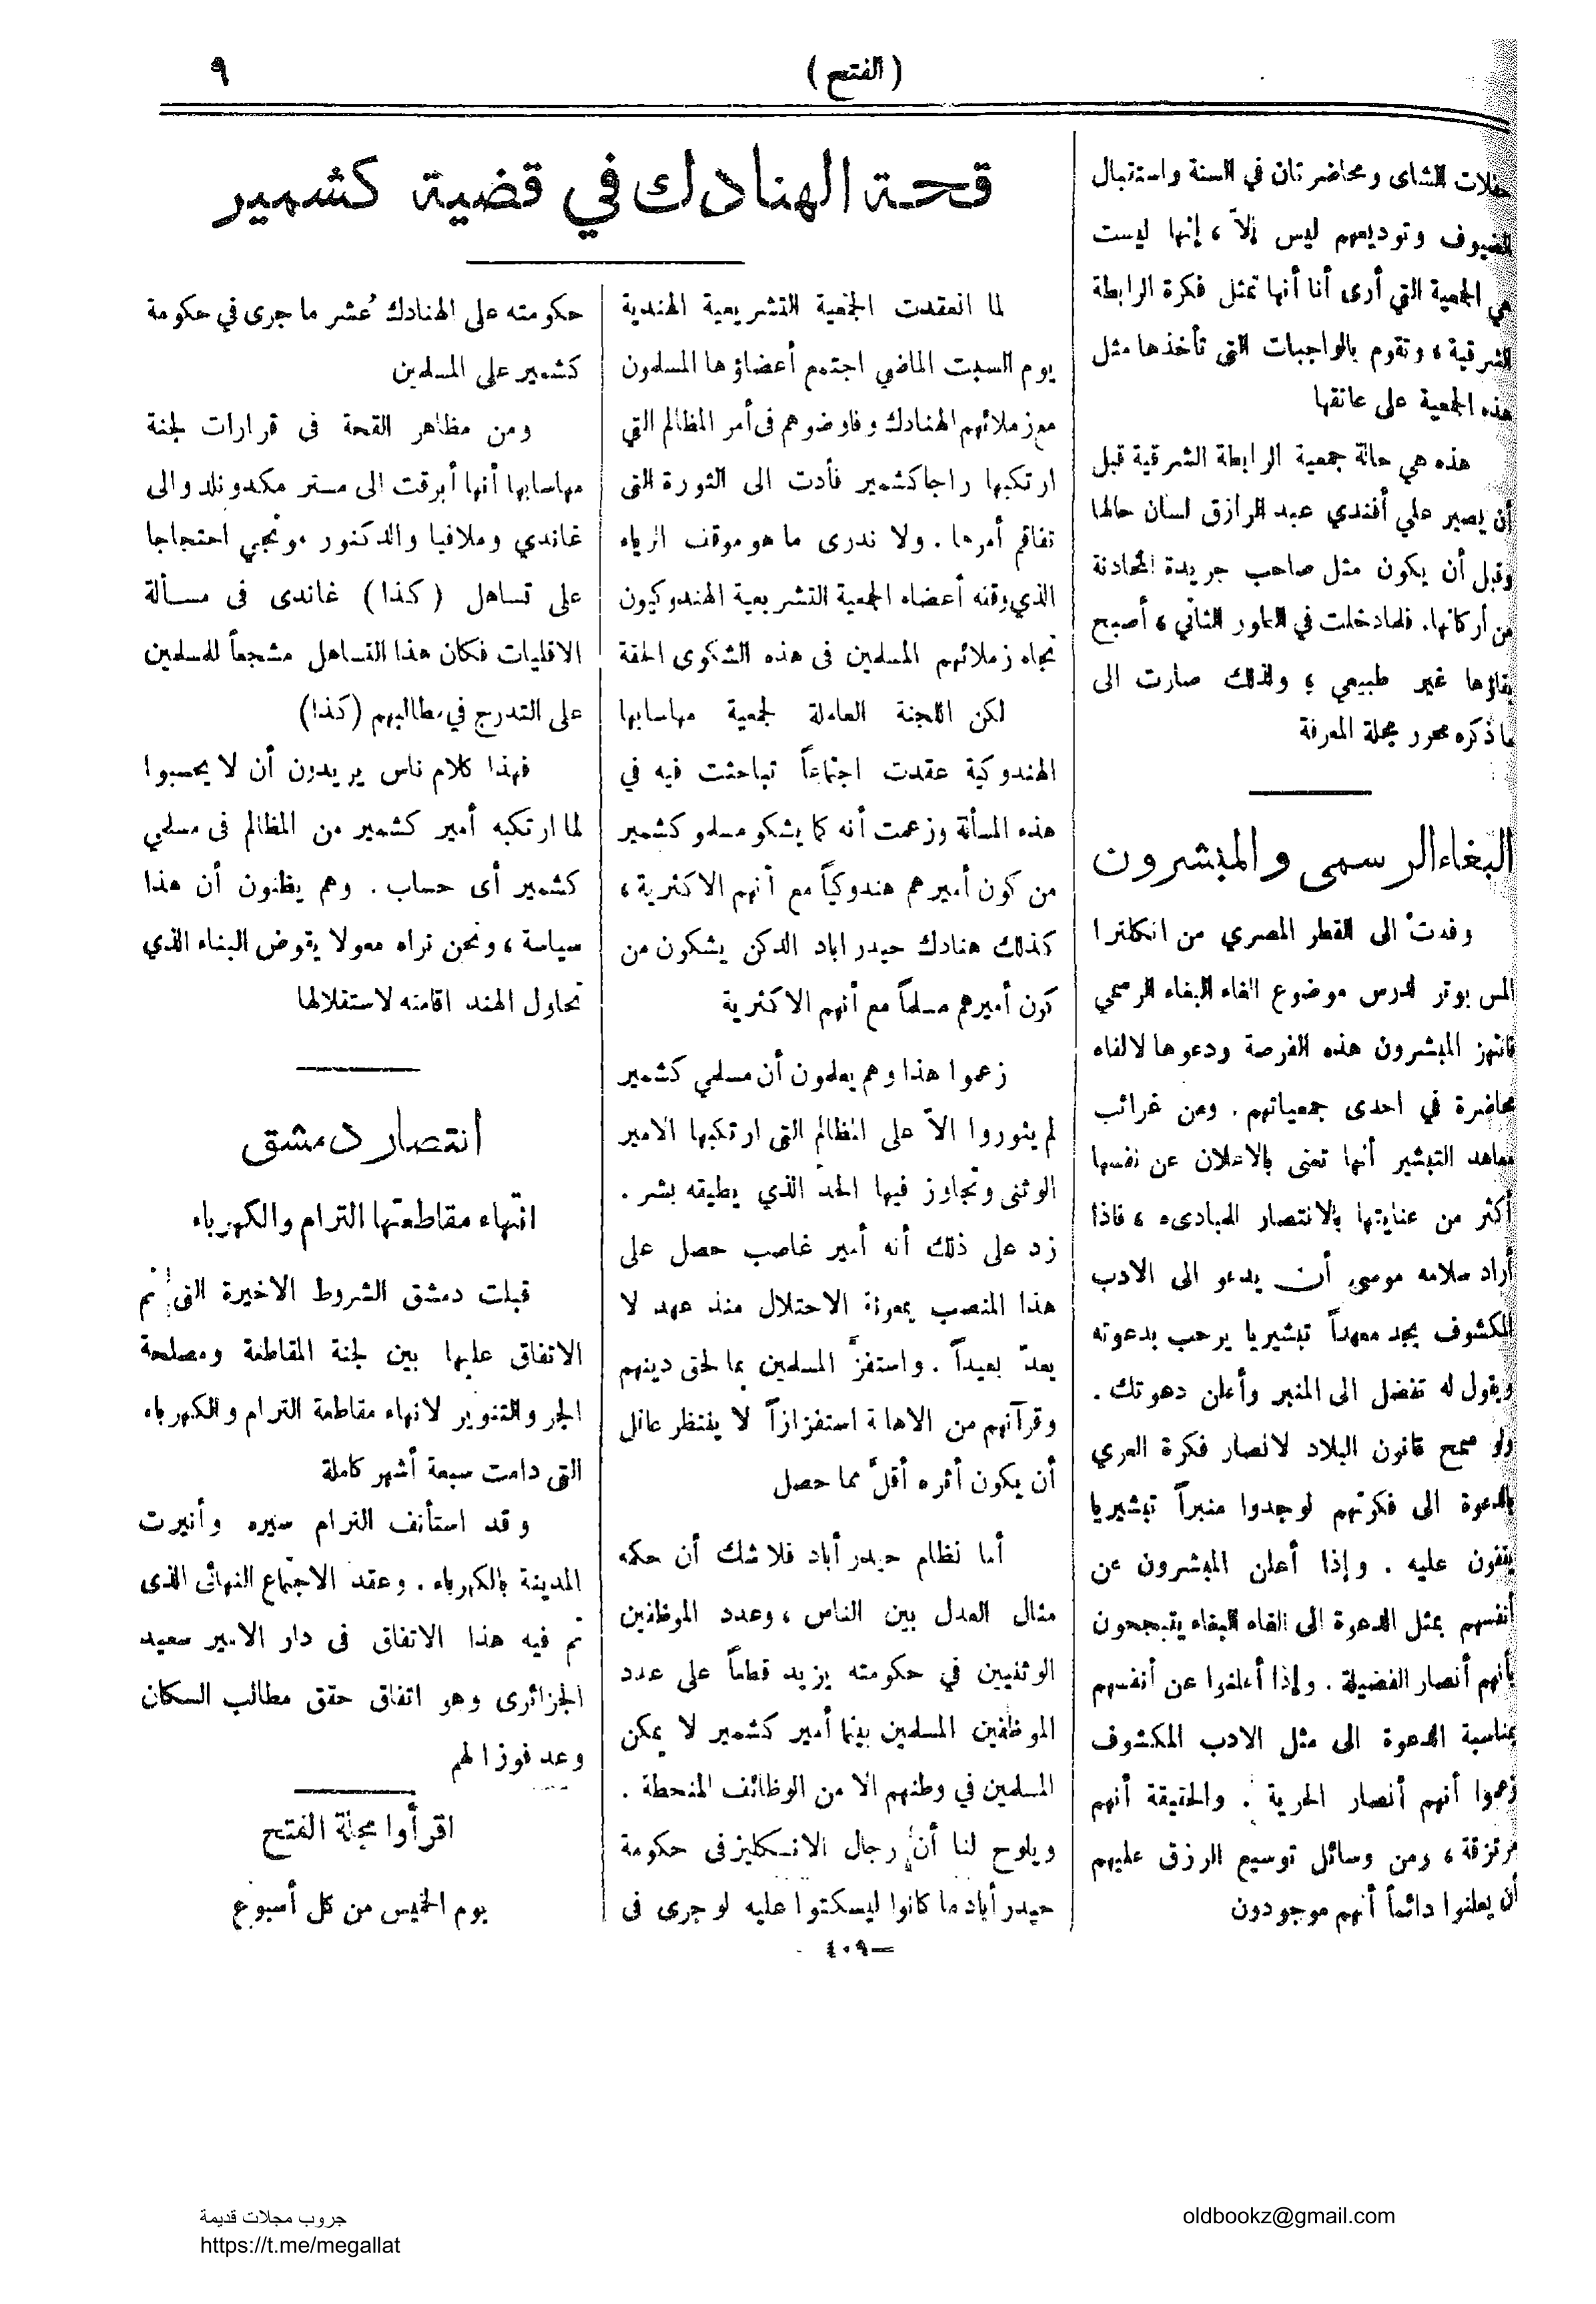 ( الفتح )
٩
حفلات الشاى ومحاضرتان في السنة واستقبال
الضيوف وتوديعهم ليس إلاّ ، إنها ليست
هي الجمعية التي أرى أنا أنها تمثل فكرة الرابطة
الشرقية ، وتقوم بالواجبات التى تأخذها مثل
هذه الجمعية على عاتقها
هذه هي حالة جمعية الرابطة الشرقية قبل
أن يصير علي أفندي عبد الرازق لسان حالها
وقبل أن يكون مثل صاحب جريدة المحادثة
من أركانها. فلما دخلت في الطور الثاني ، أصبح
بقاؤها غير طبيعي ، ولذلك صارت الى
ما ذكره محرر مجلة المعرفة
البغاء الرسمى والمبشرون
وفدتْ الى القطر المصري من انكلترا
المس بوتر لدرس موضوع الغاء البغاء الرسمي
فانتهز المبشرون هذه الفرصة ودعوها لالقاء
محاضرة في احدى جمعياتهم . ومن غرائب
معاهد التبشير أنها تعنى بالاعلان عن نفسها
أكثر من عنايتها بالانتصار للمبادىء ، فاذا
أراد سلامه موسى أن يدعو الى الادب
المكشوف يجد معهداً تبشيريا يرحب بدعوته
ويقول له تفضل الى المنبر وأعلن دعوتك .
ولو سمح قانون البلاد لانصار فكرة العري
بالدعوة الى فكرتهم لوجدوا منبراً تبشيريا
يقفون عليه . وإذا أعلن المبشرون عن
أنفسهم بمثل الدعوة الى الغاء البغاء يتبجحون
بأنهم أنصار الفضيلة . وإذا أعلنوا عن أنفسهم
بمناسبة الدعوة الى مثل الادب المكشوف
زعموا أنهم أنصار الحرية . والحقيقة أنهم
مرتزقة ، ومن وسائل توسيع الرزق عليهم
أن يعلنوا دائماً أنهم موجودون
قحة الهنادك في قضية كشمير
لما انعقدت الجمعية التشريعية الهندية
يوم السبت الماضي اجتمع أعضاؤها المسلمون
مع زملائهم الهنادك وفاوضوهم فى أمر المظالم التي
ارتكبها راجا كشمير فأدت الى الثورة التى
تفاقم أمرها . ولا ندرى ما هو موقف الرياء
الذي وقفه أعضاء الجمعية التشريعية الهندوكيون
تجاه زملائهم المسلمين فى هذه الشكوى الحقة
لكن اللجنة العاملة لجمعية مهاسابها
الهندوكية عقدت اجتماعاً تباحثت فيه في
هذه المسألة وزعمت أنه كما يشكو مسلمو كشمير
من كون أميرهم هندوكياً مع أنهم الاكثرية ،
كذلك هنادك حيدر اباد الدكن يشكون من
كون أميرهم مسلماً مع أنهم الاكثرية
زعموا هذا وهم يعلمون أن مسلمي كشمير
لم يثوروا الاّ على المظالم التى ارتكبها الامير
الوثنى وتجاوز فيها الحدّ الذي يطيقه بشر .
زد على ذلك أنه أمير غاصب حصل على
هذا المنصب بمعونة الاحتلال منذ عهد لا
يعدّ بعيداً . واستفزَّ المسلمين بما لحق دينهم
وقرآنهم من الاهانة استفزازاً لا ينتظر عاقل
أن يكون أثره أقلّ مما حصل
أما نظام حيدر أباد فلا شك أن حكمه
مثال العدل بين الناس ، وعدد الموظفين
الوثنيين في حكومته يزيد قطعاً على عدد
الموظفين المسلمين بينما أمير كشمير لا يمكن
المسلمين في وطنهم الا من الوظائف المنحطة .
ويلوح لنا أن رجال الانكليز فى حكومة
حيدر أباد ما كانوا ليسكتوا عليه لو جرى فى
حكومته على الهنادك عُشر ما جرى في حكومة
كشمير على المسلمين
ومن مظاهر القحة فى قرارات لجنة
مهاسابها أنها أبرقت الى مستر مكدونلد والى
غاندي وملافيا والدكتور مونجي احتجاجا
على تساهل (كذا) غاندى فى مسألة
الاقليات فكان هذا التساهل مشجعاً للمسلمين
على التدرج في مطالبهم (كذا)
فهذا كلام ناس يريدون أن لا يحسبوا
لما ارتكبه أمير كشمير من المظالم فى مسلمي
كشمير أى حساب . وهم يظنون أن هذا
سياسة ، ونحن نراه معولا يقوض البناء الذي
تحاول الهند اقامته لاستقلالها
انتصار دمشق
انتهاء مقاطعتها الترام والكهرباء
قبلت دمشق الشروط الاخيرة التى تم
الاتفاق عليها بين لجنة المقاطعة ومصلحة
الجر والتنوير لانهاء مقاطعة الترام والكهرباء
التى دامت سبعة أشهر كاملة
وقد استأنف الترام سيره وأنيرت
المدينة بالكهرباء . وعقد الاجتماع النهائى الذى
تم فيه هذا الاتفاق فى دار الامير سعيد
الجزائرى وهو اتفاق حقق مطالب السكان
وعد فوزا لهم
اقرأوا مجلة الفتح
يوم الخميس من كل أسبوع
— ٤٠٩ -
جروب مجلات قديمة
https://t.me/megallat
oldbookz@gmail.com